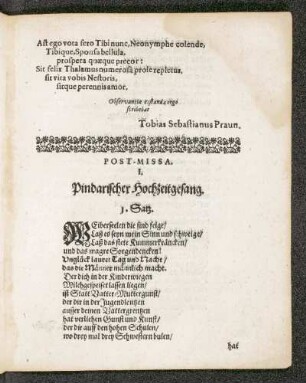 Ast ego vota fero Tibi nunc, Neonymphe colende,
Tibique, Sponsa bellula,
prospera quæque precor:
Sit felix Thalamus numerosâ prole repletus,
sit vita vobis Nestoris,
sitque perennis amor.
Observantiæ testandæ ergò
scribebat
Tobias Sebastianus Praun.
POST-MISSA.
I.
Pindarischer Hochzeitgesang.
1. Satz.
Weiberseelen die sind feige/
Laß es seyn mein Sinn und schweige/
Laß das stete Kummerkräncken/
und das magre Sorgendencken!
Unglück lauret Tag und Nacht/
das die Männer männlich macht.
Der dich in der Kinderwiegen
Milchgespeiset lassen ligen/
ist Statt Vatter-Muttergunst/
der dir in der Jugendlentzen
ausser deinen Vattergrentzen
hat verliehen Gunst und Kunst/
der dir auff den hohen Schulen/
wo drey mal drey Schwestern bulen/
hat